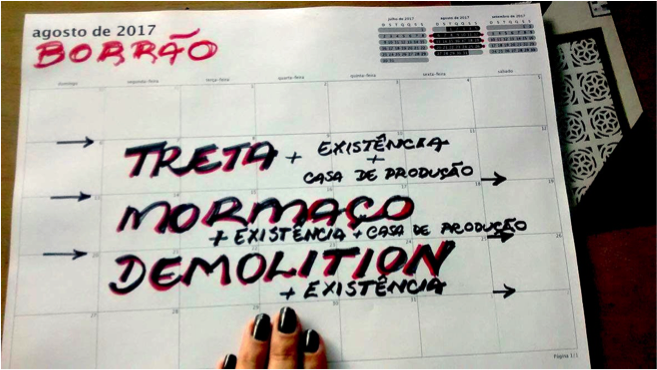 agosto de 2017
BORRÃO
julho de 2017
agosto de 2017
setembro de 2017
domingo segunda-feira terça-feira quarta-feira quinta-feira sexta-feira sábado
TRETA + EXISTÊNCIA
+
CASA DE PRODUÇÃO
MORMAÇO
+ EXISTÊNCIA + CASA DE PRODUÇÃO
DEMOLITION
+ EXISTÊNCIA
Página 1/1